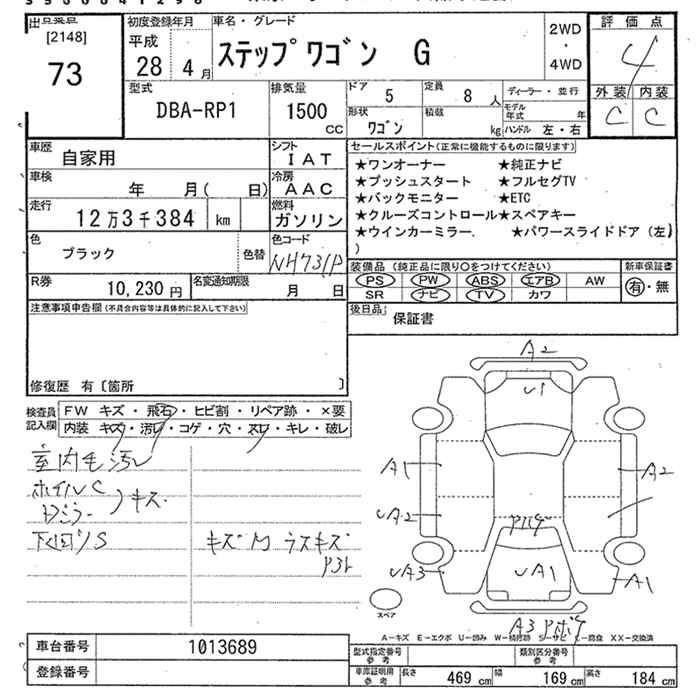 出品票点
初度登録年月
車名・グレード
2WD
・
4WD
評価点
[2148]
73
平成
28年 4月
ステップワゴン G
4
外装 内装
C C
型式
DBA-RP1
排気量
1500
CC
ドア
5
定員
8人
ディーラー・並行
形状
ワゴン
積載
kg
モデル年式 年
ハンドル 左・右
車歴
自家用
シフト
IAT
セールスポイント(正常に機能するものに限ります)
★ワンオーナー ★純正ナビ
★プッシュスタート ★フルセグTV
★バックモニター ★ETC
★クルーズコントロール★スペアキー
★ウインカーミラー. ★パワースライドドア(左)
)
車検
年 月( 日)
冷房
AAC
走行
12万3千384 km
燃料
ガソリン
色
ブラック
色替
色コード
NH731P
装備品 (純正品に限り○をつけてください)
新車保証書
PS PW ABS エアB AW
SR ナビ TV カワ
有・無
R券
10,230円
名変通知期限
月 日
注意事項申告欄(不具合内容等は具体的に記入して下さい)
後日品
保証書
修復歴 有〔箇所 〕
検査員記入欄
FW キズ・飛石・ヒビ割・リペア跡・×要
内装 キズ・汚レ・コゲ・穴・スレ・キレ・破レ
室内モ汚レ
ホイルC
ドミラー
キズ
下回リS
キズM ラスキズ
A2
U1
A1
A2
UA2
UA3
UA1
A1
A3
スペア
A-キズ E-エクボ U-凹み W-補修跡 S-サビ C-腐食 XX-交換済
車台番号
1013689
登録番号
型式指定番号
参考
類別区分番号
参考
車庫証明用
参考
長さ 469cm
幅 169cm
高さ 184cm